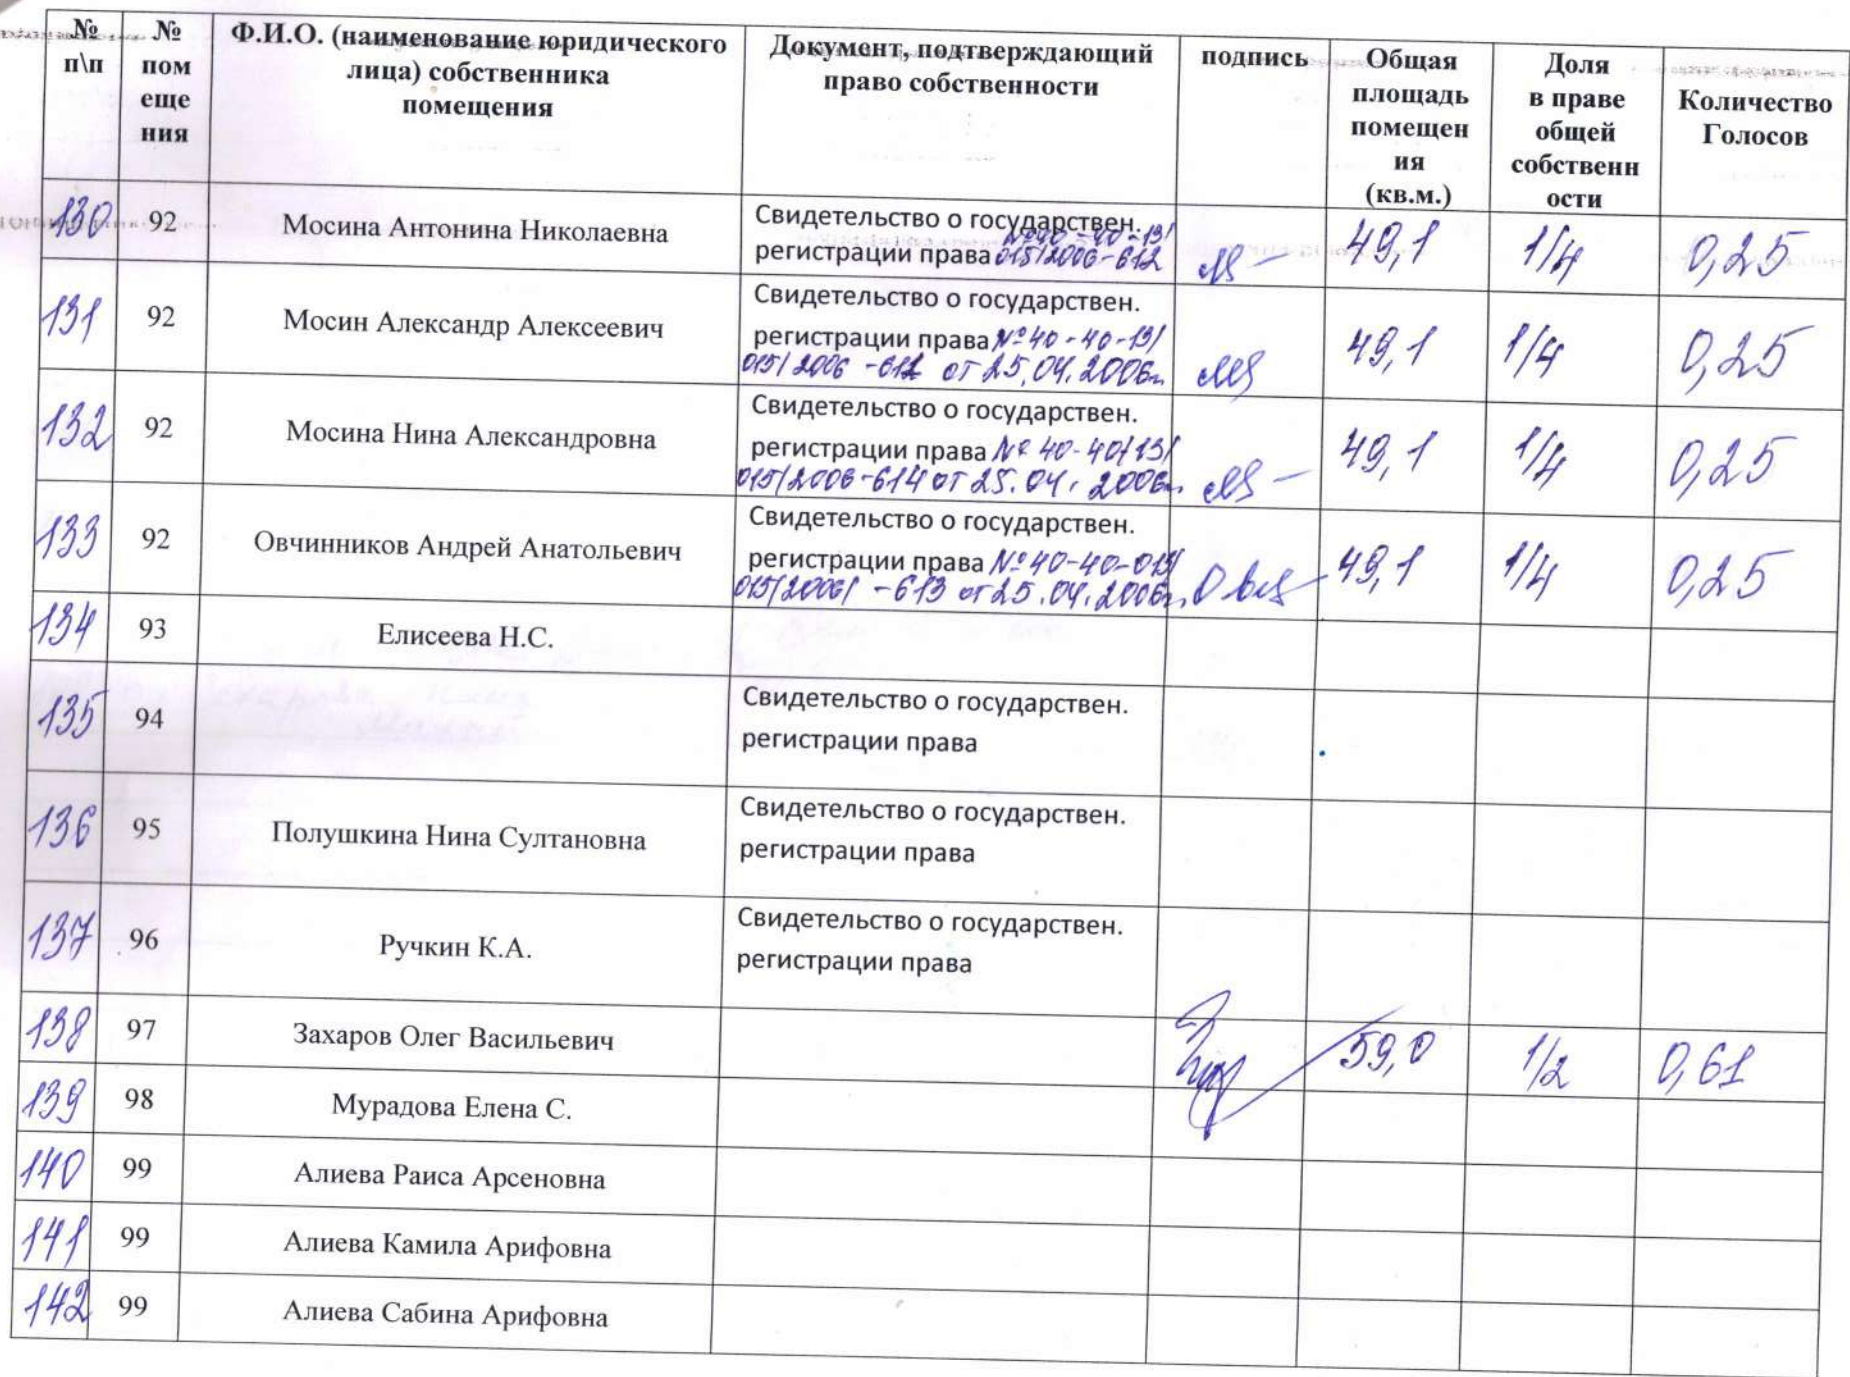 № п\п
№ пом еще ния
Ф.И.О. (наименование юридического
лица) собственника
помещения
Документ, подтверждающий
право собственности
подпись
Общая
площадь
помещен
ия
(кв.м.)
Доля
в праве
общей
собственн
ости
Количество
Голосов
130 92 Мосина Антонина Николаевна
Свидетельство о государствен. №40-40-13/
регистрации права 015/2006-612
49,1 1/4 0,25
131 92 Мосин Александр Алексеевич
Свидетельство о государствен.
регистрации права №40-40-13/
015/2006-611 от 25.04.2006г.
49,1 1/4 0,25
132 92 Мосина Нина Александровна
Свидетельство о государствен.
регистрации права № 40-40/13/
015/2006-614 от 25.04.2006г.
49,1 1/4 0,25
133 92 Овчинников Андрей Анатольевич
Свидетельство о государствен.
регистрации права №40-40-013/
015/2006/-613 от 25.04.2006г.
49,1 1/4 0,25
134 93 Елисеева Н.С.
135 94
Свидетельство о государствен.
регистрации права
136 95 Полушкина Нина Султановна
Свидетельство о государствен.
регистрации права
137 96 Ручкин К.А.
Свидетельство о государствен.
регистрации права
138 97 Захаров Олег Васильевич 59,0 1/2 0,61
139 98 Мурадова Елена С.
140 99 Алиева Раиса Арсеновна
141 99 Алиева Камила Арифовна
142 99 Алиева Сабина Арифовна